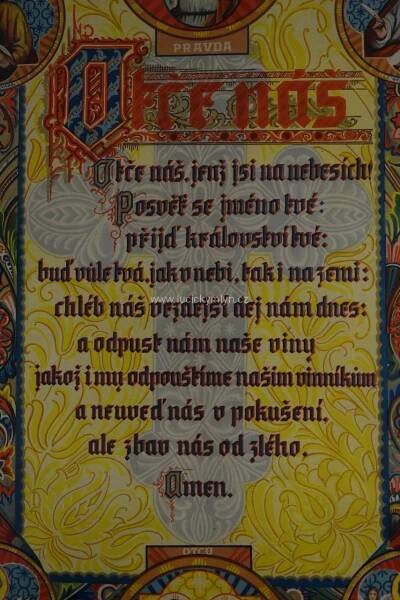 PRAVDA
Otče náš
Otče náš, jenž jsi na nebesích!
Posvěť se jméno tvé:
přijď království tvé:
buď vůle tvá, jak v nebi, tak i na zemi:
chléb náš vezdejší dej nám dnes:
www.lucickymlyn.cz
a odpusť nám naše viny
jakož i my odpouštíme našim vinníkům
a neuveď nás v pokušení,
ale zbav nás od zlého.
Amen.
OTČE